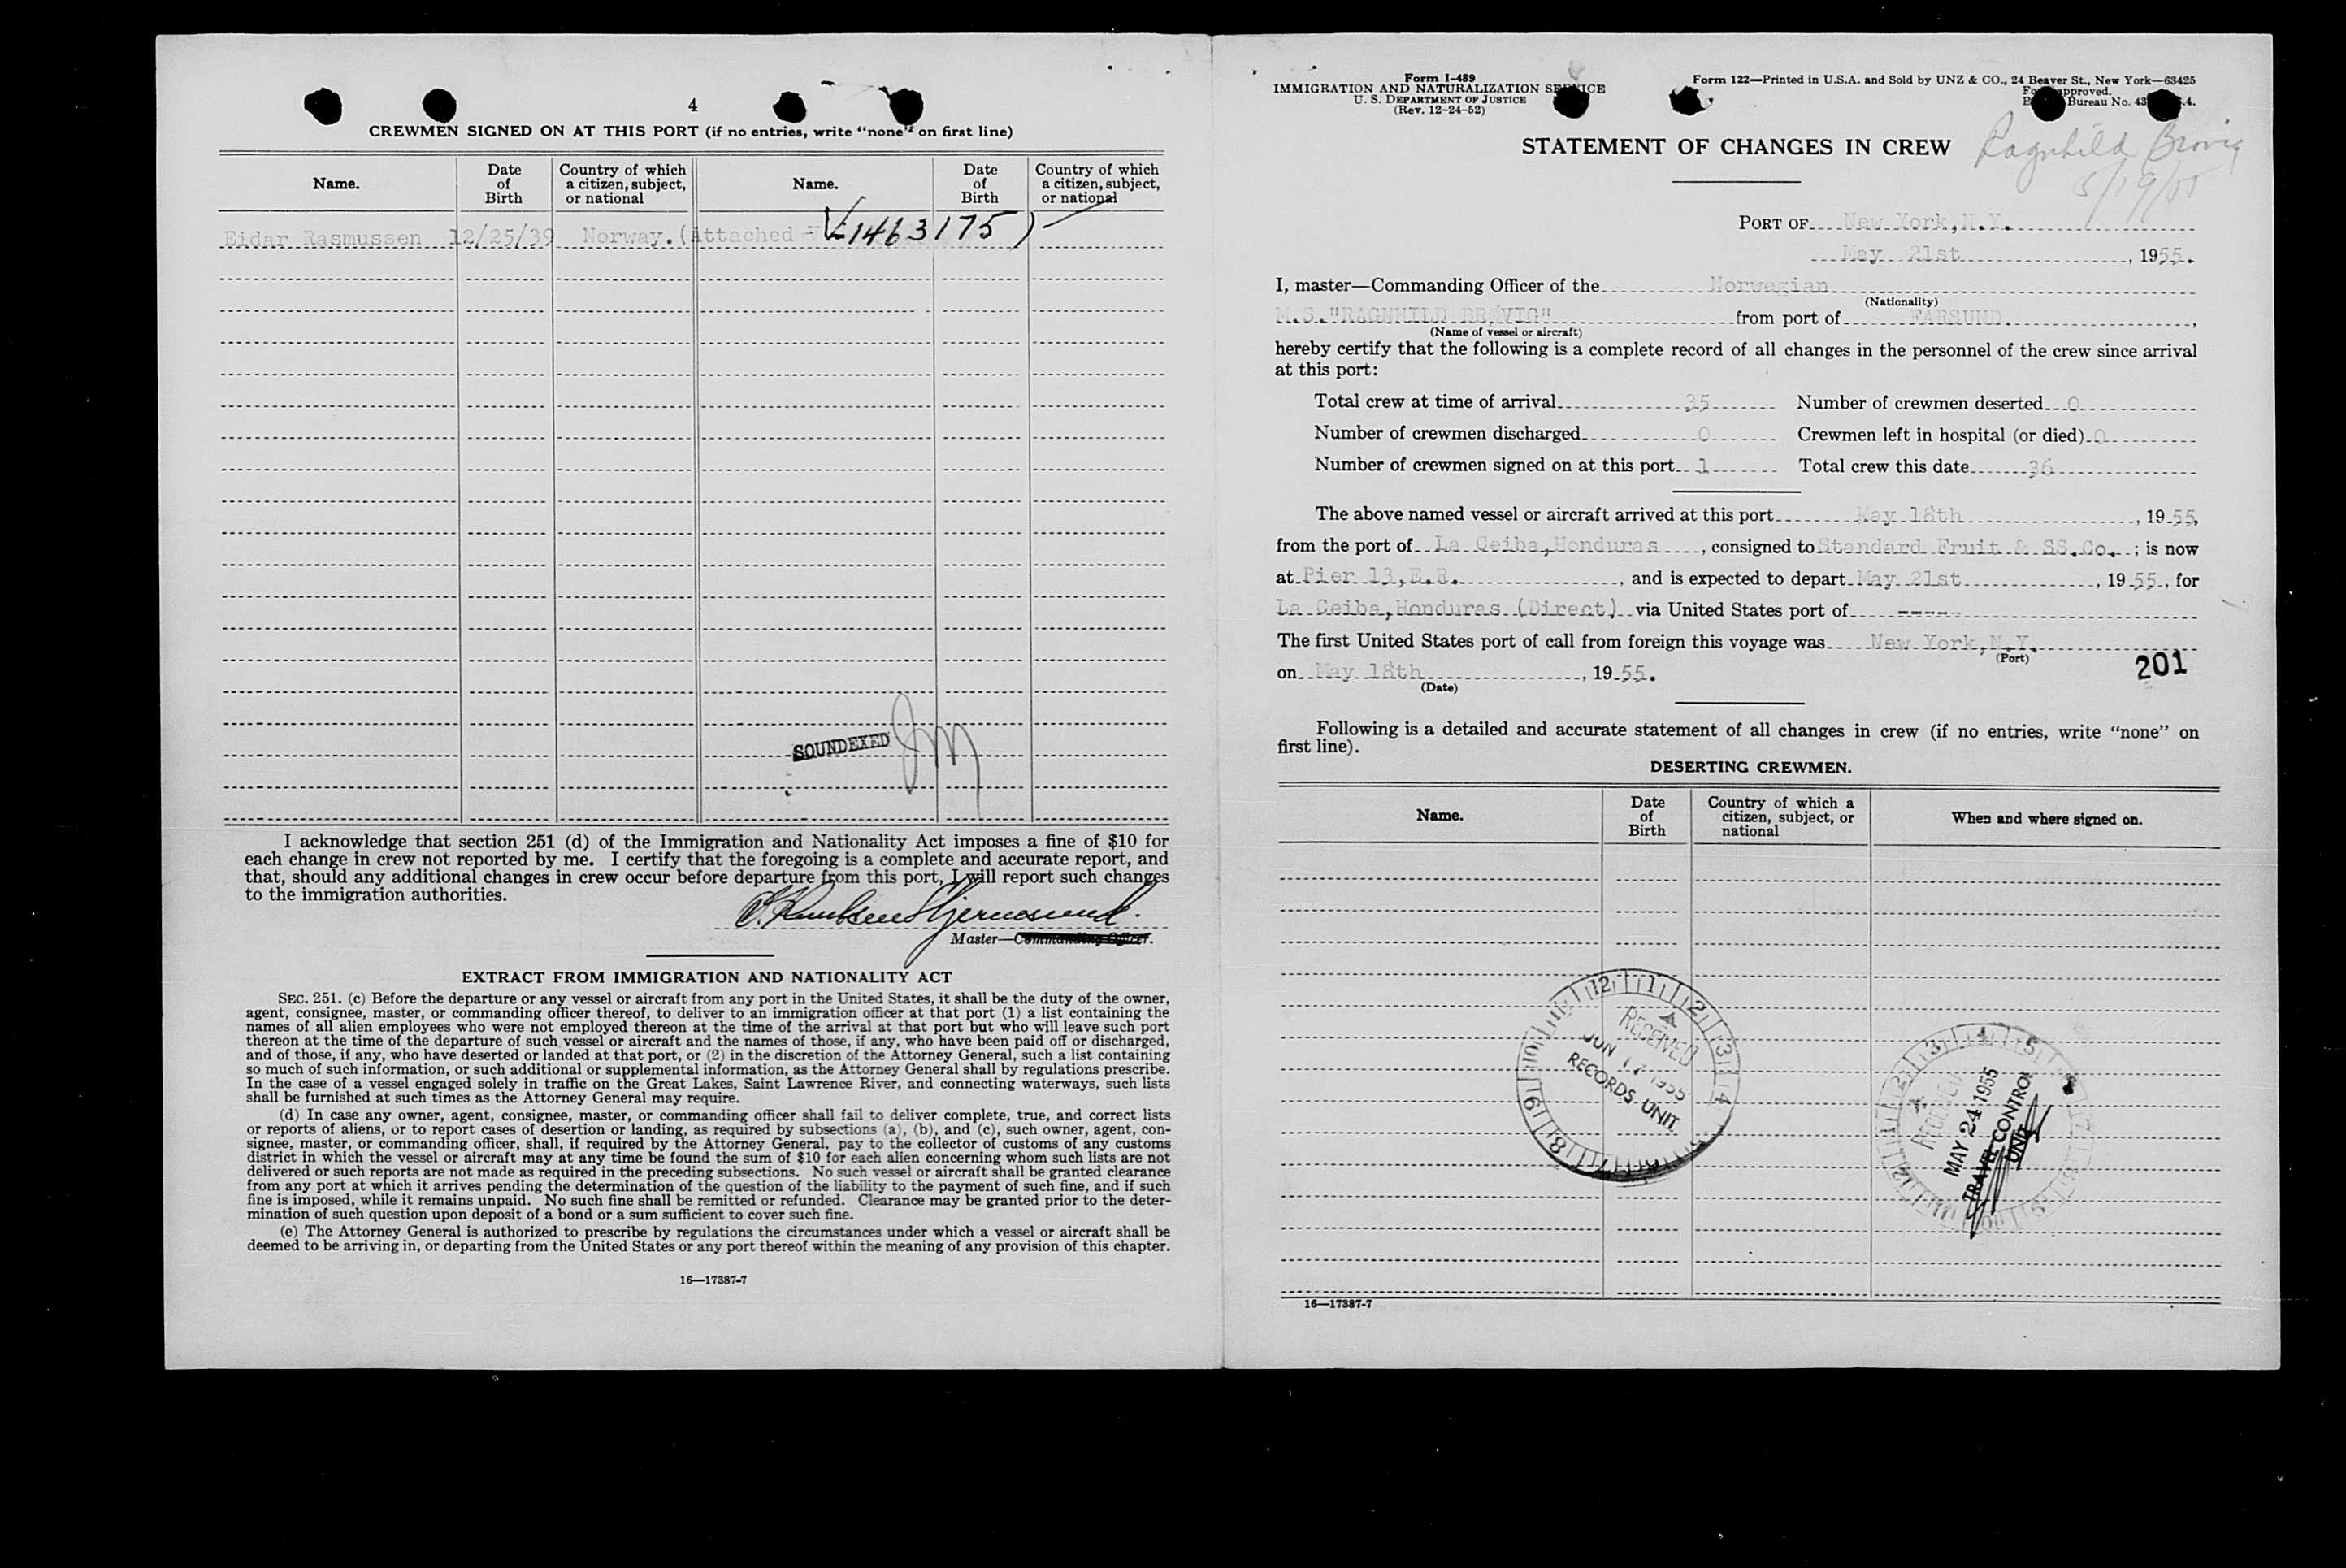 4
CREWMEN SIGNED ON AT THIS PORT (if no entries, write "none" on first line)
Name. Date of Birth Country of which a citizen, subject, or national Name. Date of Birth Country of which a citizen, subject, or national
Eidar Rasmussen 12/25/39 Norway. (Attached 1463175)
SOUNDEXED JM
I acknowledge that section 251 (d) of the Immigration and Nationality Act imposes a fine of $10 for
each change in crew not reported by me. I certify that the foregoing is a complete and accurate report, and
that, should any additional changes in crew occur before departure from this port, I will report such changes
to the immigration authorities.
Master—Commanding Officer.
EXTRACT FROM IMMIGRATION AND NATIONALITY ACT
SEC. 251. (c) Before the departure or any vessel or aircraft from any port in the United States, it shall be the duty of the owner,
agent, consignee, master, or commanding officer thereof, to deliver to an immigration officer at that port (1) a list containing the
names of all alien employees who were not employed thereon at the time of the arrival at that port but who will leave such port
thereon at the time of the departure of such vessel or aircraft and the names of those, if any, who have been paid off or discharged,
and of those, if any, who have deserted or landed at that port, or (2) in the discretion of the Attorney General, such a list containing
so much of such information, or such additional or supplemental information, as the Attorney General shall by regulations prescribe.
In the case of a vessel engaged solely in traffic on the Great Lakes, Saint Lawrence River, and connecting waterways, such lists
shall be furnished at such times as the Attorney General may require.
(d) In case any owner, agent, consignee, master, or commanding officer shall fail to deliver complete, true, and correct lists
or reports of aliens, or to report cases of desertion or landing, as required by subsections (a), (b), and (c), such owner, agent, con-
signee, master, or commanding officer, shall, if required by the Attorney General, pay to the collector of customs of any customs
district in which the vessel or aircraft may at any time be found the sum of $10 for each alien concerning whom such lists are not
delivered or such reports are not made as required in the preceding subsections. No such vessel or aircraft shall be granted clearance
from any port at which it arrives pending the determination of the question of the liability to the payment of such fine, and if such
fine is imposed, while it remains unpaid. No such fine shall be remitted or refunded. Clearance may be granted prior to the deter-
mination of such question upon deposit of a bond or a sum sufficient to cover such fine.
(e) The Attorney General is authorized to prescribe by regulations the circumstances under which a vessel or aircraft shall be
deemed to be arriving in, or departing from the United States or any port thereof within the meaning of any provision of this chapter.
16—17387-7
Form I-489
IMMIGRATION AND NATURALIZATION SERVICE
U. S. DEPARTMENT OF JUSTICE
(Rev. 12-24-52)
Form 122—Printed in U.S.A. and Sold by UNZ & CO., 24 Beaver St., New York—63425
approved.
Bureau No. 43
STATEMENT OF CHANGES IN CREW
Ragnhild Brovig
5/19/55
PORT OF New York, N.Y.
May 21st, 1955.
I, master—Commanding Officer of the Norwegian
(Nationality)
M.S. "RAGNHILD BRØVIG" from port of FARSUND,
(Name of vessel or aircraft)
hereby certify that the following is a complete record of all changes in the personnel of the crew since arrival
at this port:
Total crew at time of arrival 35 Number of crewmen deserted 0
Number of crewmen discharged 0 Crewmen left in hospital (or died) 0
Number of crewmen signed on at this port 1 Total crew this date 36
The above named vessel or aircraft arrived at this port May 18th, 1955,
from the port of La Ceiba, Honduras, consigned to Standard Fruit & SS.Co.; is now
at Pier 13, E.R., and is expected to depart May 21st, 1955, for
La Ceiba, Honduras (Direct) via United States port of -----
The first United States port of call from foreign this voyage was New York, N.Y.
(Port)
on May 18th, 1955.
(Date)
201
Following is a detailed and accurate statement of all changes in crew (if no entries, write "none" on
first line).
DESERTING CREWMEN.
Name. Date of Birth Country of which a citizen, subject, or national When and where signed on.
RECEIVED
JUN 17 1955
RECORDS UNIT
RECEIVED
MAY 24 1955
TRAVEL CONTROL
UNIT
16—17387-7